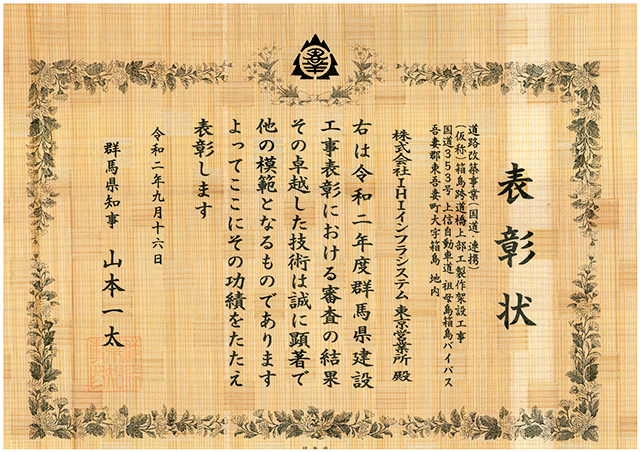 表彰状
道路改築事業(国道・連携)
(仮称)箱島跨道橋上部工製作架設工事
国道353号 上信自動車道 祖母島箱島バイパス
吾妻郡東吾妻町大字箱島 地内
株式会社IHIインフラシステム 東京営業所 殿
右は令和二年度群馬県建設
工事表彰における審査の結果
その卓越した技術は誠に顕著で
他の模範となるものであります
よってここにその功績をたたえ
表彰します
令和二年九月十六日
群馬県知事 山本一太